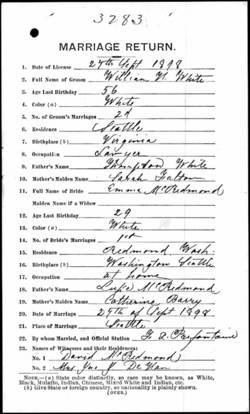 3283
MARRIAGE RETURN.
1. Date of License 27th Sept 1898
2. Full Name of Groom William H. White
3. Age Last Birthday 56
4. Color (a) White
5. No. of Groom's Marriages 2d
6. Residence Seattle
7. Birthplace (b) Virginia
8. Occupation Lawyer
9. Father's Name White
10. Mother's Maiden Name Sarah
11. Full Name of Bride Emma McRedmond
Maiden Name if a Widow
12. Age Last Birthday 29
13. Color (a) White
14. No. of Bride's Marriages 1st
15. Residence Redmond Wash.
16. Birthplace (b) Washington Seattle
17. Occupation at home
18. Father's Name Luke McRedmond
19. Mother's Maiden Name Catherine Barry
20. Date of Marriage 29th of Sept 1898
21. Place of Marriage Seattle
22. By whom Married, and Official Station F. X. Prefontaine
23. Names of Witnesses and their Residences:
No. 1 David McRedmond
No. 2 Mrs
NOTE.—(a) State color distinctly, so race may be known, as White,
Black, Mulatto, Indian, Chinese, Mixed White and Indian, etc.
(b) Give State or foreign country, so nationality is plainly shown.
(OVER)